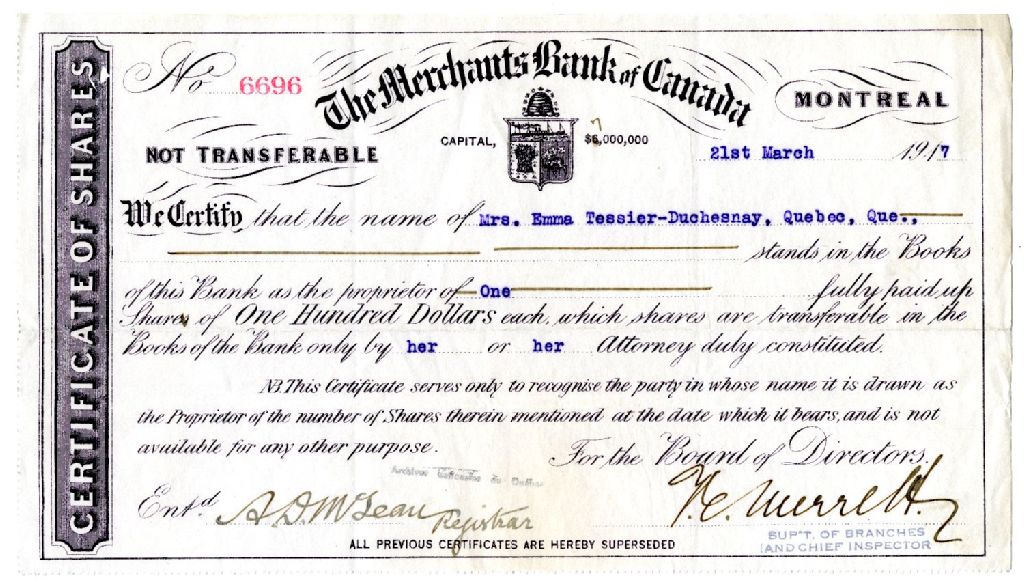 CERTIFICATE OF SHARES
No 6696
The Merchants Bank of Canada
MONTREAL
CAPITAL, $6,000,000
7
NOT TRANSFERABLE
21st March 1917
We Certify that the name of Mrs. Emma Tessier-Duchesnay, Quebec, Que.,
stands in the Books
of this Bank as the proprietor of One fully paid up
Shares of One Hundred Dollars each, which shares are transferable in the
Books of the Bank only by her or her Attorney duly constituted.
NB. This Certificate serves only to recognise the party in whose name it is drawn as
the Proprietor of the number of Shares therein mentioned at the date which it bears, and is not
available for any other purpose.
For the Board of Directors.
Archives Nationales du Québec
Ent.d A. D. McLean Registrar
T. E. Merrett
SUP'T. OF BRANCHES
AND CHIEF INSPECTOR
ALL PREVIOUS CERTIFICATES ARE HEREBY SUPERSEDED